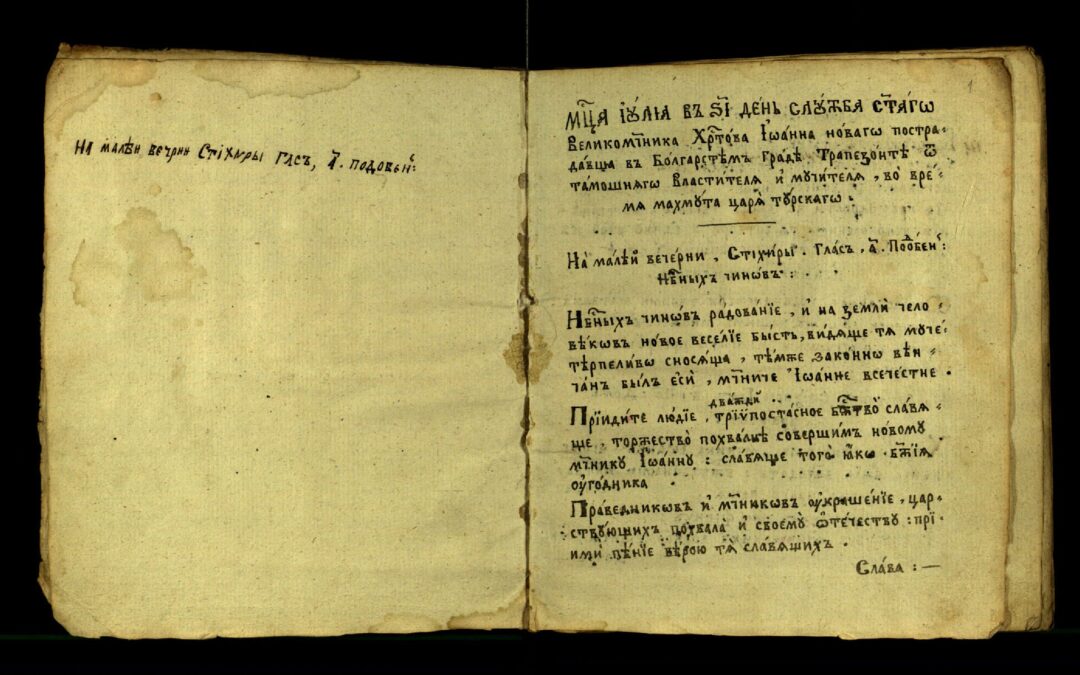 На малѣи вечрни Стіхиры глсъ, а҃. подобен:
1
Мц҃а іꙋ́лїа въ ѕ҃і де́нь слꙋ́жба ст҃а́гѡ
Великомч҃ника Хрⷭ҇то́ва Іѡа́нна но́вагѡ постра-
да́вша въ Бо́лгарстѣмъ гра́дѣ Трапезо́нтѣ ѿ
та́мошнягѡ Власти́теля и҆ мꙋчи́теля, во вре́-
мя махмꙋ́та царѧ̀ тꙋ́рскагѡ.
На ма́лѣй вече́рни, Стїхи́ры. гла́съ, а҃. Подо́бен:
Нбⷭ҇ныхъ чинѡ́въ:
Нбⷭ҇ныхъ чинѡ́въ ра́дованїе, и҆ на землѝ чело-
вѣ́кѡвъ но́вое весе́лїе бы́сть, ви́дѧще тѧ мꙋчє-
тєрпели́вѡ сносѧ́ща, тѣ́мже зако́ннѡ вѣн-
ча́нъ бы́лъ є҆сѝ, мч҃ниче Іѡа́нне всече́стне.
два́жды
Прїиди́те лю́дїе, трїѵпоста́сное бж҃ство̀ сла́вѧ-
ще, торжество̀ похва́лнѣ соверши́мъ но́вомꙋ
мч҃никꙋ Іѡа́ннꙋ: сла́вѧще того̀ ꙗ҆́кѡ бж҃їѧ
ѹ҆го́дника
Пра́ведникѡвъ и҆ мч҃никѡвъ ѹ҆краше́нїе, цар-
ствꙋ́ющихъ похвала̀ и҆ своемꙋ̀ ѻ҆те́честву: прї-
имѝ пѣ́нїе вѣ́рою тѧ̀ сла́вѧщихъ.
Сла́ва:—